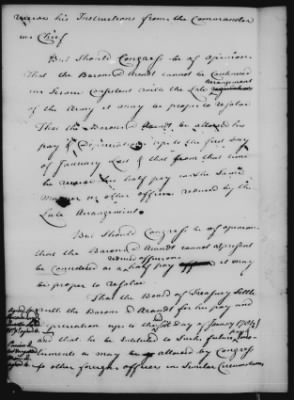 receive his Instructions from the Commander
in Chief
But Should Congress be of opinion
that the Baron d'Arendt cannot be Continued
in Service Consistent with the Late
Arrangement
of the Army it may be proper to resolve
That the Baron d'Arendt be allowed his
pay & Depreciation up to the first day
of January Last & that from that time
he receive half pay in the Same
Manner as other officers reduced by the
Late Arrangement.
But Should Congress be of opinion
that the Baron d'Arendt cannot at present
be Considered as a half pay
reduced officer
it may
be proper to resolve
That the Board of Treasury Settle
with the Baron d'Arendt for his pay and
depreciation up to the 1st day of January 1781
and that he be entitled to Such future
as may be allowed by Congress
to other foreign officers in Similar Circumstances